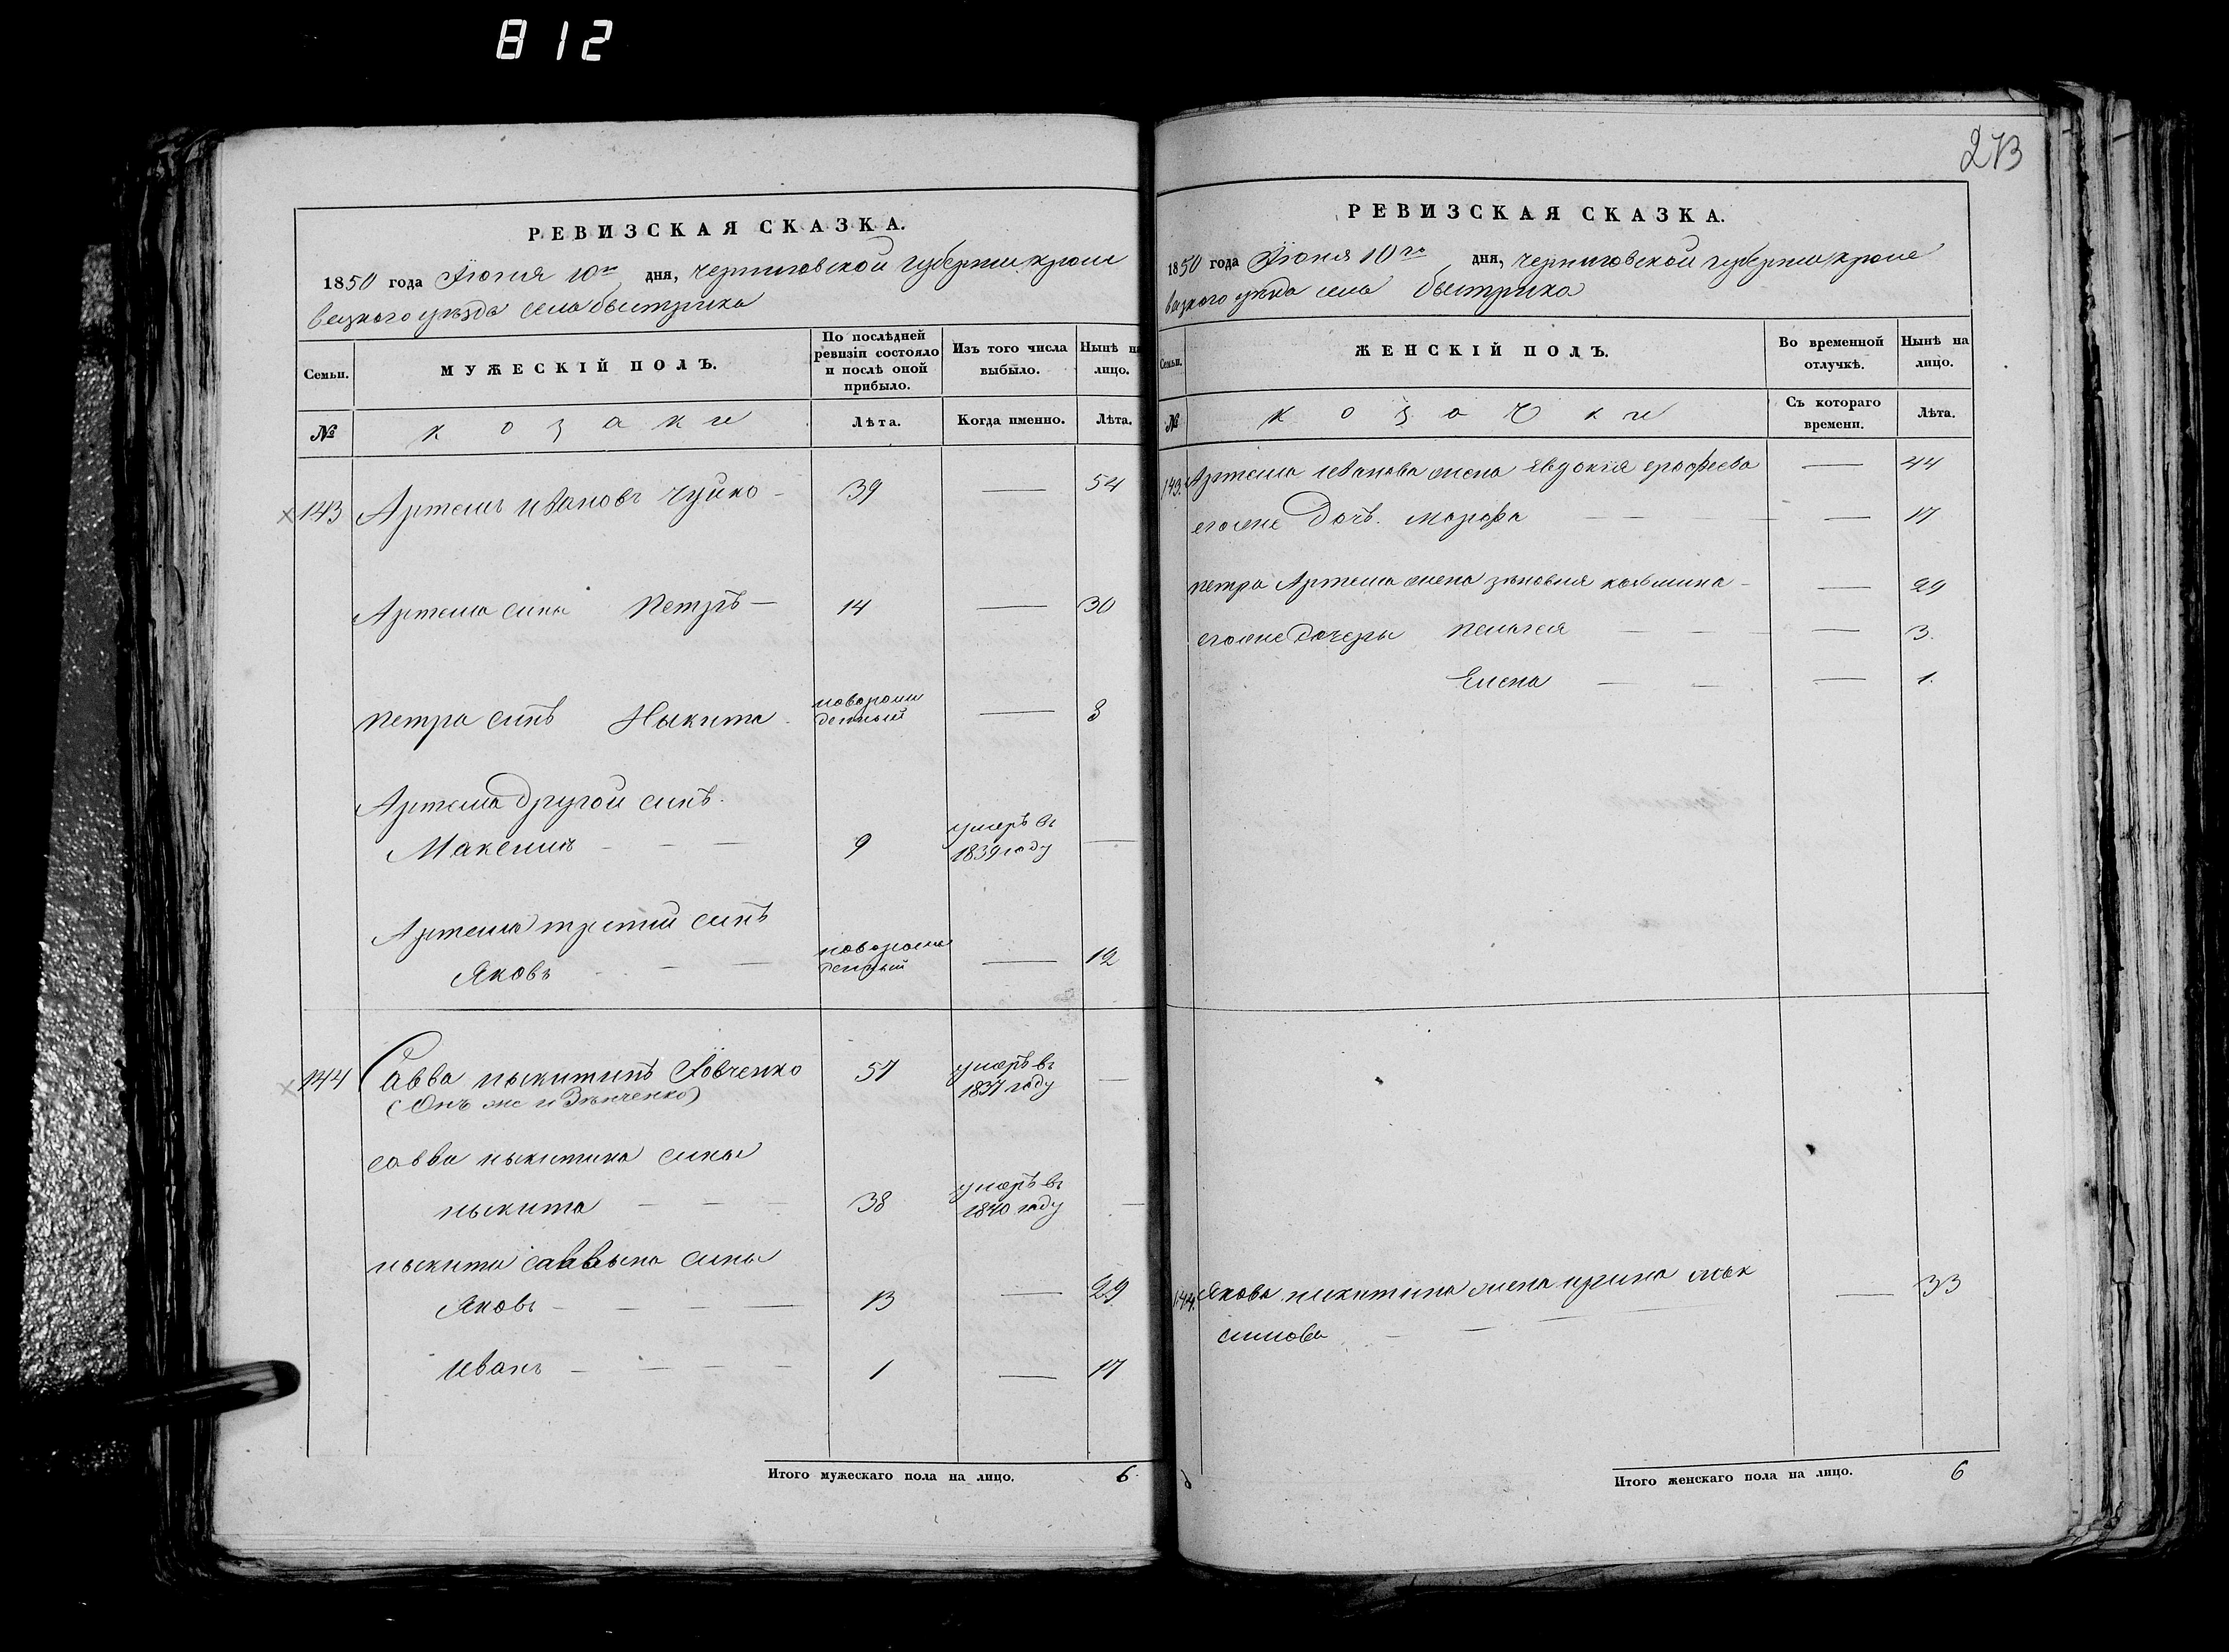 812
273
РЕВИЗСКАЯ СКАЗКА.
1850 года Іюня 10го дня, Черниговской губерніи кроле
вецкого уѣзда села быстрика
Семьи.
МУЖЕСКІЙ ПОЛЪ.
По послѣдней ревизіи состояло и послѣ оной прибыло.
Изъ того числа выбыло.
Нынѣ на лицо.
№
козаки
Лѣта.
Когда именно.
Лѣта.
143 Артемъ Ивановъ Чуйко - 39 — 54
Артема сины Петръ — 14 — 30
петра синъ Ныкита - новорож
денный — 3
Артема другой синъ.
Максимъ - — — 9 умеръ въ
1839 году —
Артема третий синъ
Яковъ - — — новорож
денный — 12
144 Савва ныкитинъ Іовченко 57 умеръ въ
1837 году —
(Онъ же и Зѣнченко)
савви ныкитина сины
ныкита — — — 38 умеръ въ
1840 году —
ныкити саввына сины
Яковъ - — — 13 — 29
Иванъ — — — — 1 — 17
Итого мужескаго пола на лицо. 6.
РЕВИЗСКАЯ СКАЗКА.
1850 года Іюня 10го дня, Черниговской губерніи кроле
вецкого уѣзда села быстрика
Семьи.
ЖЕНСКІЙ ПОЛЪ.
Во временной отлучкѣ.
Нынѣ на лицо.
№
козачки
Съ котораго времени.
Лѣта.
143. Артема Иванова жена Явдокія ерофѣева — 44
егоже дочь. марфа — — — — 17
петра Артема жена зѣновия козьмина - — 29
егоже дочеры пелагея — — — 3.
Елена — — — 1.
144. Якова никитина жена ирина мак
симова - — — — 33
Итого женскаго пола на лицо. 6